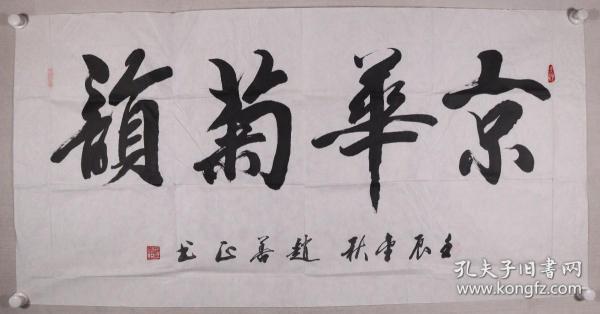 京華菊韻
壬辰年秋 趙善正书
孔夫子旧书网
www.kongfz.com